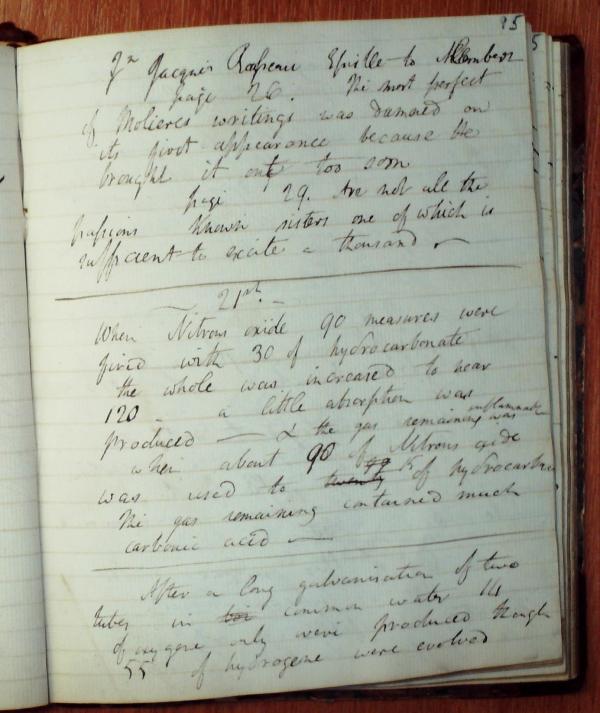 95
Jn Jacques Rousseau Epistle to Alembert
page 26. The most perfect
of Molieres writings was damned on
its first appearance because he
brought it out too soon
page 29. Are not all the
passions known sisters one of which is
sufficient to excite a thousand
21st.
When Nitrous oxide 90 measures were
fired with 30 of hydrocarbonate
the whole was increased to near
120 a little absorption was
produced — & the gas remaining was inflammable
when about 90 of Nitrous oxide
was used to twenty of hydrocarbonate
The gas remaining contained much
carbonic acid —
After a long galvanisation of two
tubes in common water 14
of oxygene only were produced though
55 of hydrogene were evolved